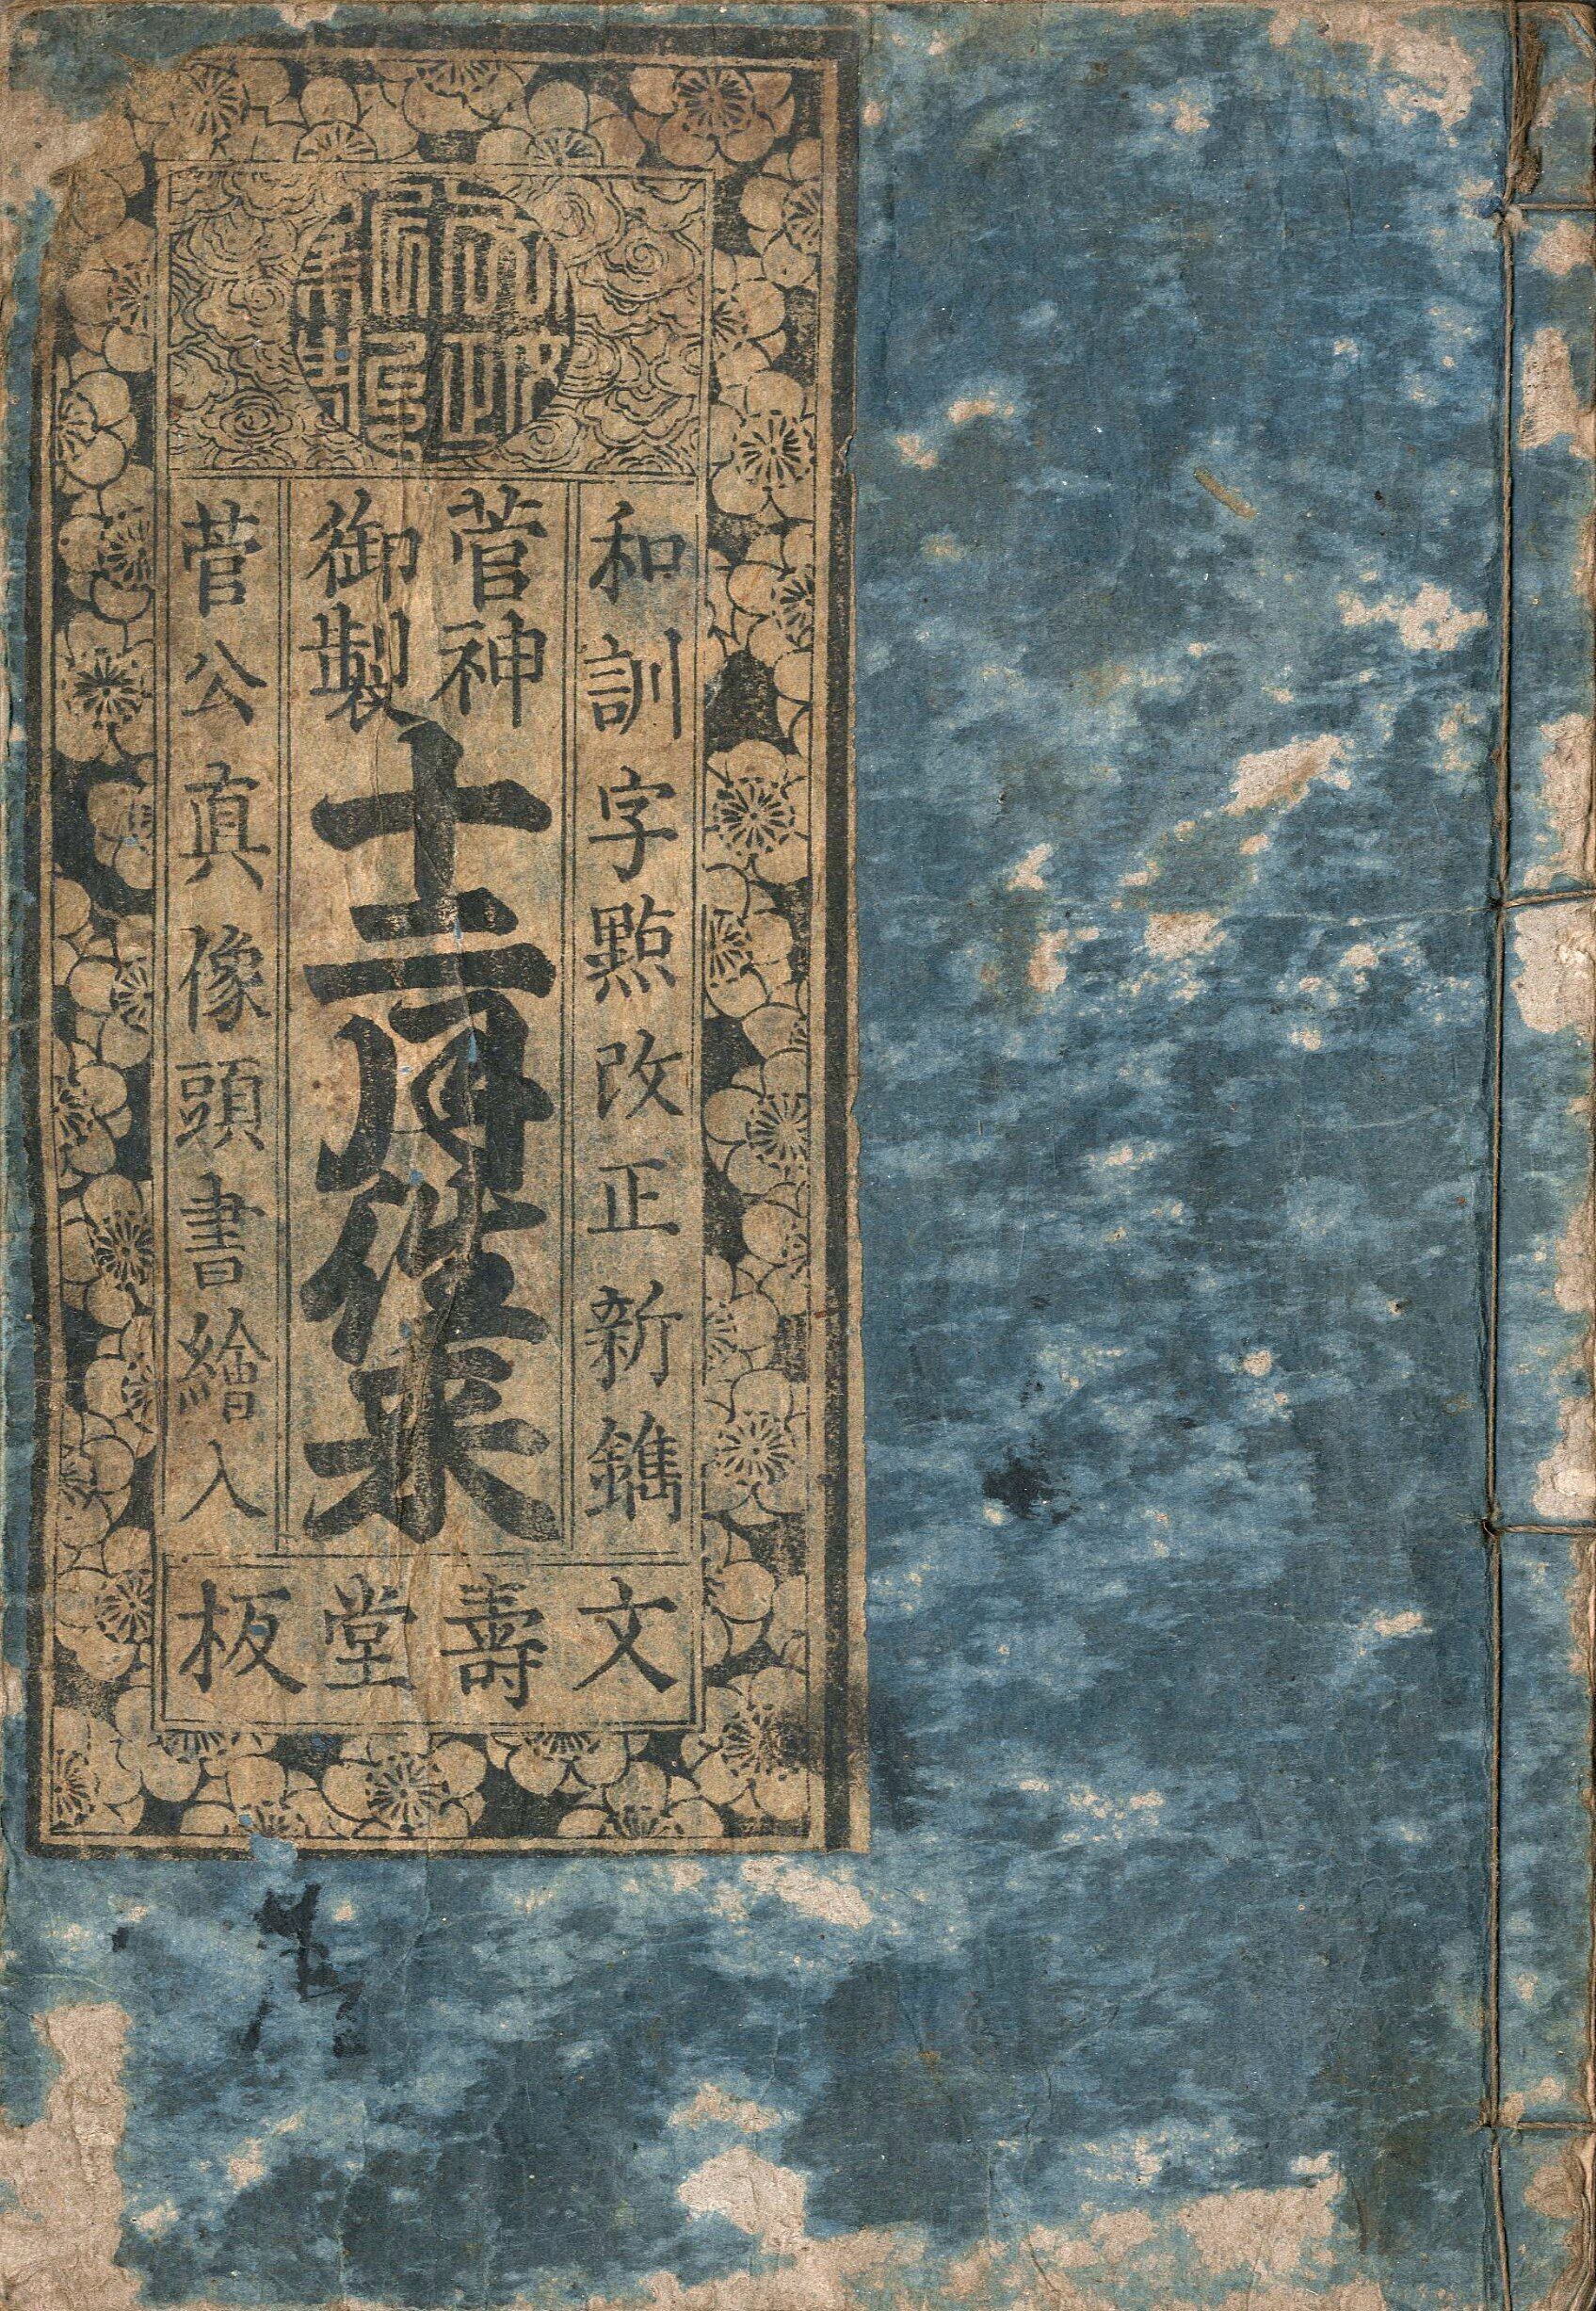 和訓字點改正新鐫
菅神
御製
十二月往来
菅公真像頭書繪入
文壽堂板